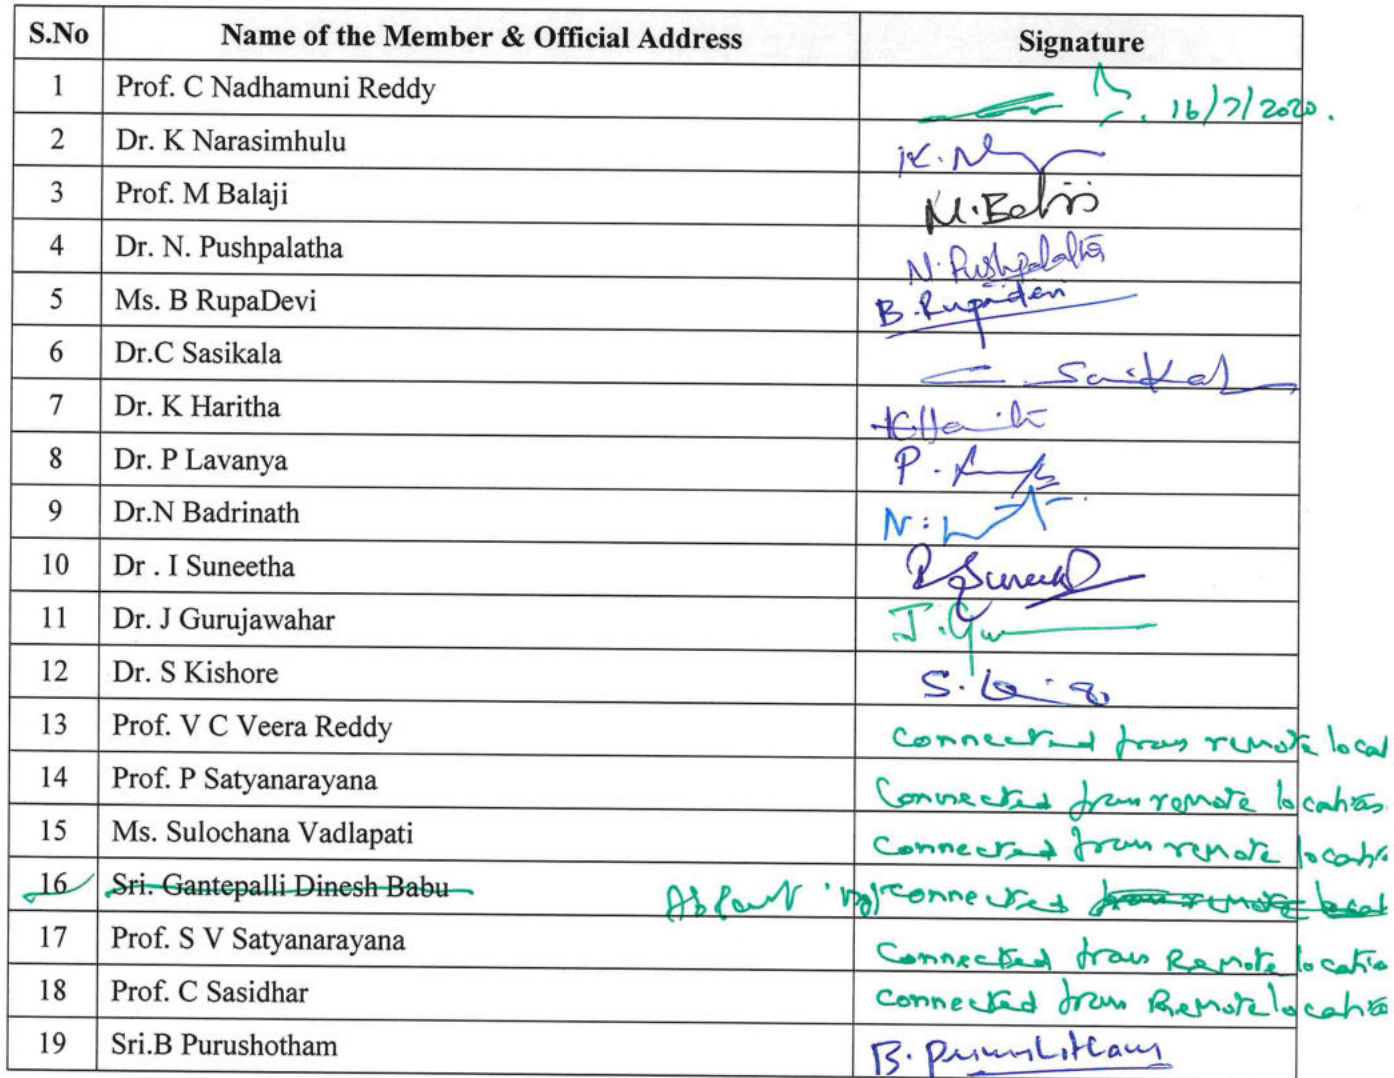 S.No Name of the Member & Official Address Signature
1 Prof. C Nadhamuni Reddy 16/7/2020.
2 Dr. K Narasimhulu K.N
3 Prof. M Balaji M.Balaji
4 Dr. N. Pushpalatha N. Pushpalatha
5 Ms. B RupaDevi B.Rupadevi
6 Dr.C Sasikala C. Sasikal
7 Dr. K Haritha K Harith
8 Dr. P Lavanya P.
9 Dr.N Badrinath N.
10 Dr . I Suneetha Suneeth
11 Dr. J Gurujawahar J.Gu
12 Dr. S Kishore S.
13 Prof. V C Veera Reddy Connected from remote local
14 Prof. P Satyanarayana Connected from remote location
15 Ms. Sulochana Vadlapati Connected from remote locatio
16 Sri. Gantepalli Dinesh Babu Absent not connected from remote local
17 Prof. S V Satyanarayana Connected from Remote locatio
18 Prof. C Sasidhar Connected from Remote locatio
19 Sri.B Purushotham B. Purushotham